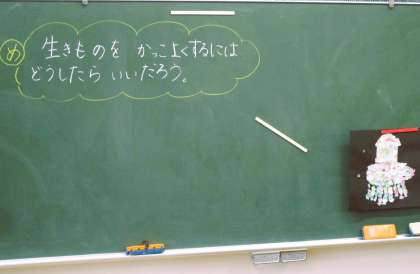 め 生きものを かっこよくするには
どうしたら いいだろう。